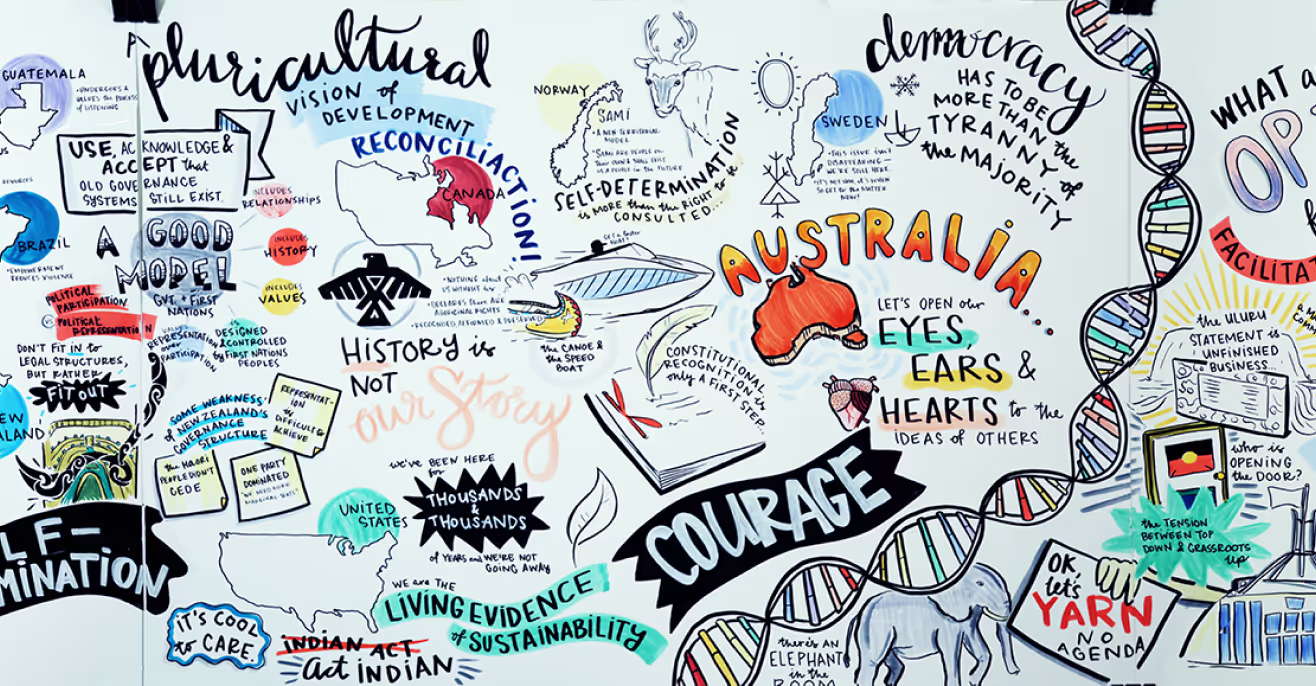 GUATEMALA
• UNDERGOES &
VALUES the PROCESS
of LISTENING
USE, ACKNOWLEDGE &
ACCEPT that
OLD GOVERNANCE
SYSTEMS STILL EXIST.
BRAZIL
• EMPOWERMENT
REDUCES VIOLENCE
POLITICAL
PARTICIPATION
VS POLITICAL
REPRESENTATION
DON'T FIT IN to
LEGAL STRUCTURES,
BUT RATHER
FIT OUT
EW
ALAND
LF-
MINATION
pluricultural
VISION of
DEVELOPMENT
RECONCILIACTION!
A
GOOD
MODEL
GVT. + FIRST
NATIONS
INCLUDES
RELATIONSHIPS
INCLUDES
HISTORY
INCLUDES
VALUES
VALUES
REPRESENTATION
over
PARTICIPATION
is
DESIGNED
& CONTROLLED
by FIRST NATIONS
PEOPLES
SOME WEAKNESS'
of NEW ZEALAND'S
GOVERNANCE
STRUCTURE
REPRESENTAT-
ION is
DIFFICULT to
ACHIEVE
the MAORI
PEOPLE DIDN'T
CEDE
ONE PARTY
DOMINATED
CANADA
• NOTHING about
US WITHOUT US
• DECLARES there ARE
ABORIGINAL RIGHTS
• RECOGNISED, AFFIRMED & PRESERVED
HISTORY is
NOT
our Story
we've BEEN HERE
for
THOUSANDS
& THOUSANDS
of YEARS and WE'RE NOT
GOING AWAY
UNITED
STATES
WE are THE
LIVING EVIDENCE
of SUSTAINABILITY
IT'S COOL
to CARE.
INDIAN ACT
Act INDIAN
NORWAY
SAMI
• A NON TERRITORIAL
MODEL
SELF-DETERMINATION
is MORE than the RIGHT to be
CONSULTED...
GET a FASTER
BOAT!
the CANOE &
the SPEED
BOAT
CONSTITUTIONAL
RECOGNITION is
only A FIRST STEP.
SWEDEN
• THIS ISSUE ISN'T
DISAPPEARING –
WE'RE STILL HERE.
NOW!
democracy
HAS TO BE
MORE THAN the
TYRANNY of
the MAJORITY
AUSTRALIA....
LET'S OPEN our
EYES,
EARS &
HEARTS to the
IDEAS of OTHERS
COURAGE
there's AN
ELEPHANT
in the
ROOM
OK,
let's
YARN
NO
AGENDA
WHAT a
OP
FACILITAT
the ULURU
STATEMENT is
UNFINISHED
BUSINESS...
who is
OPENING
the DOOR?
the TENSION
BETWEEN TOP
DOWN & GRASSROOTS
up